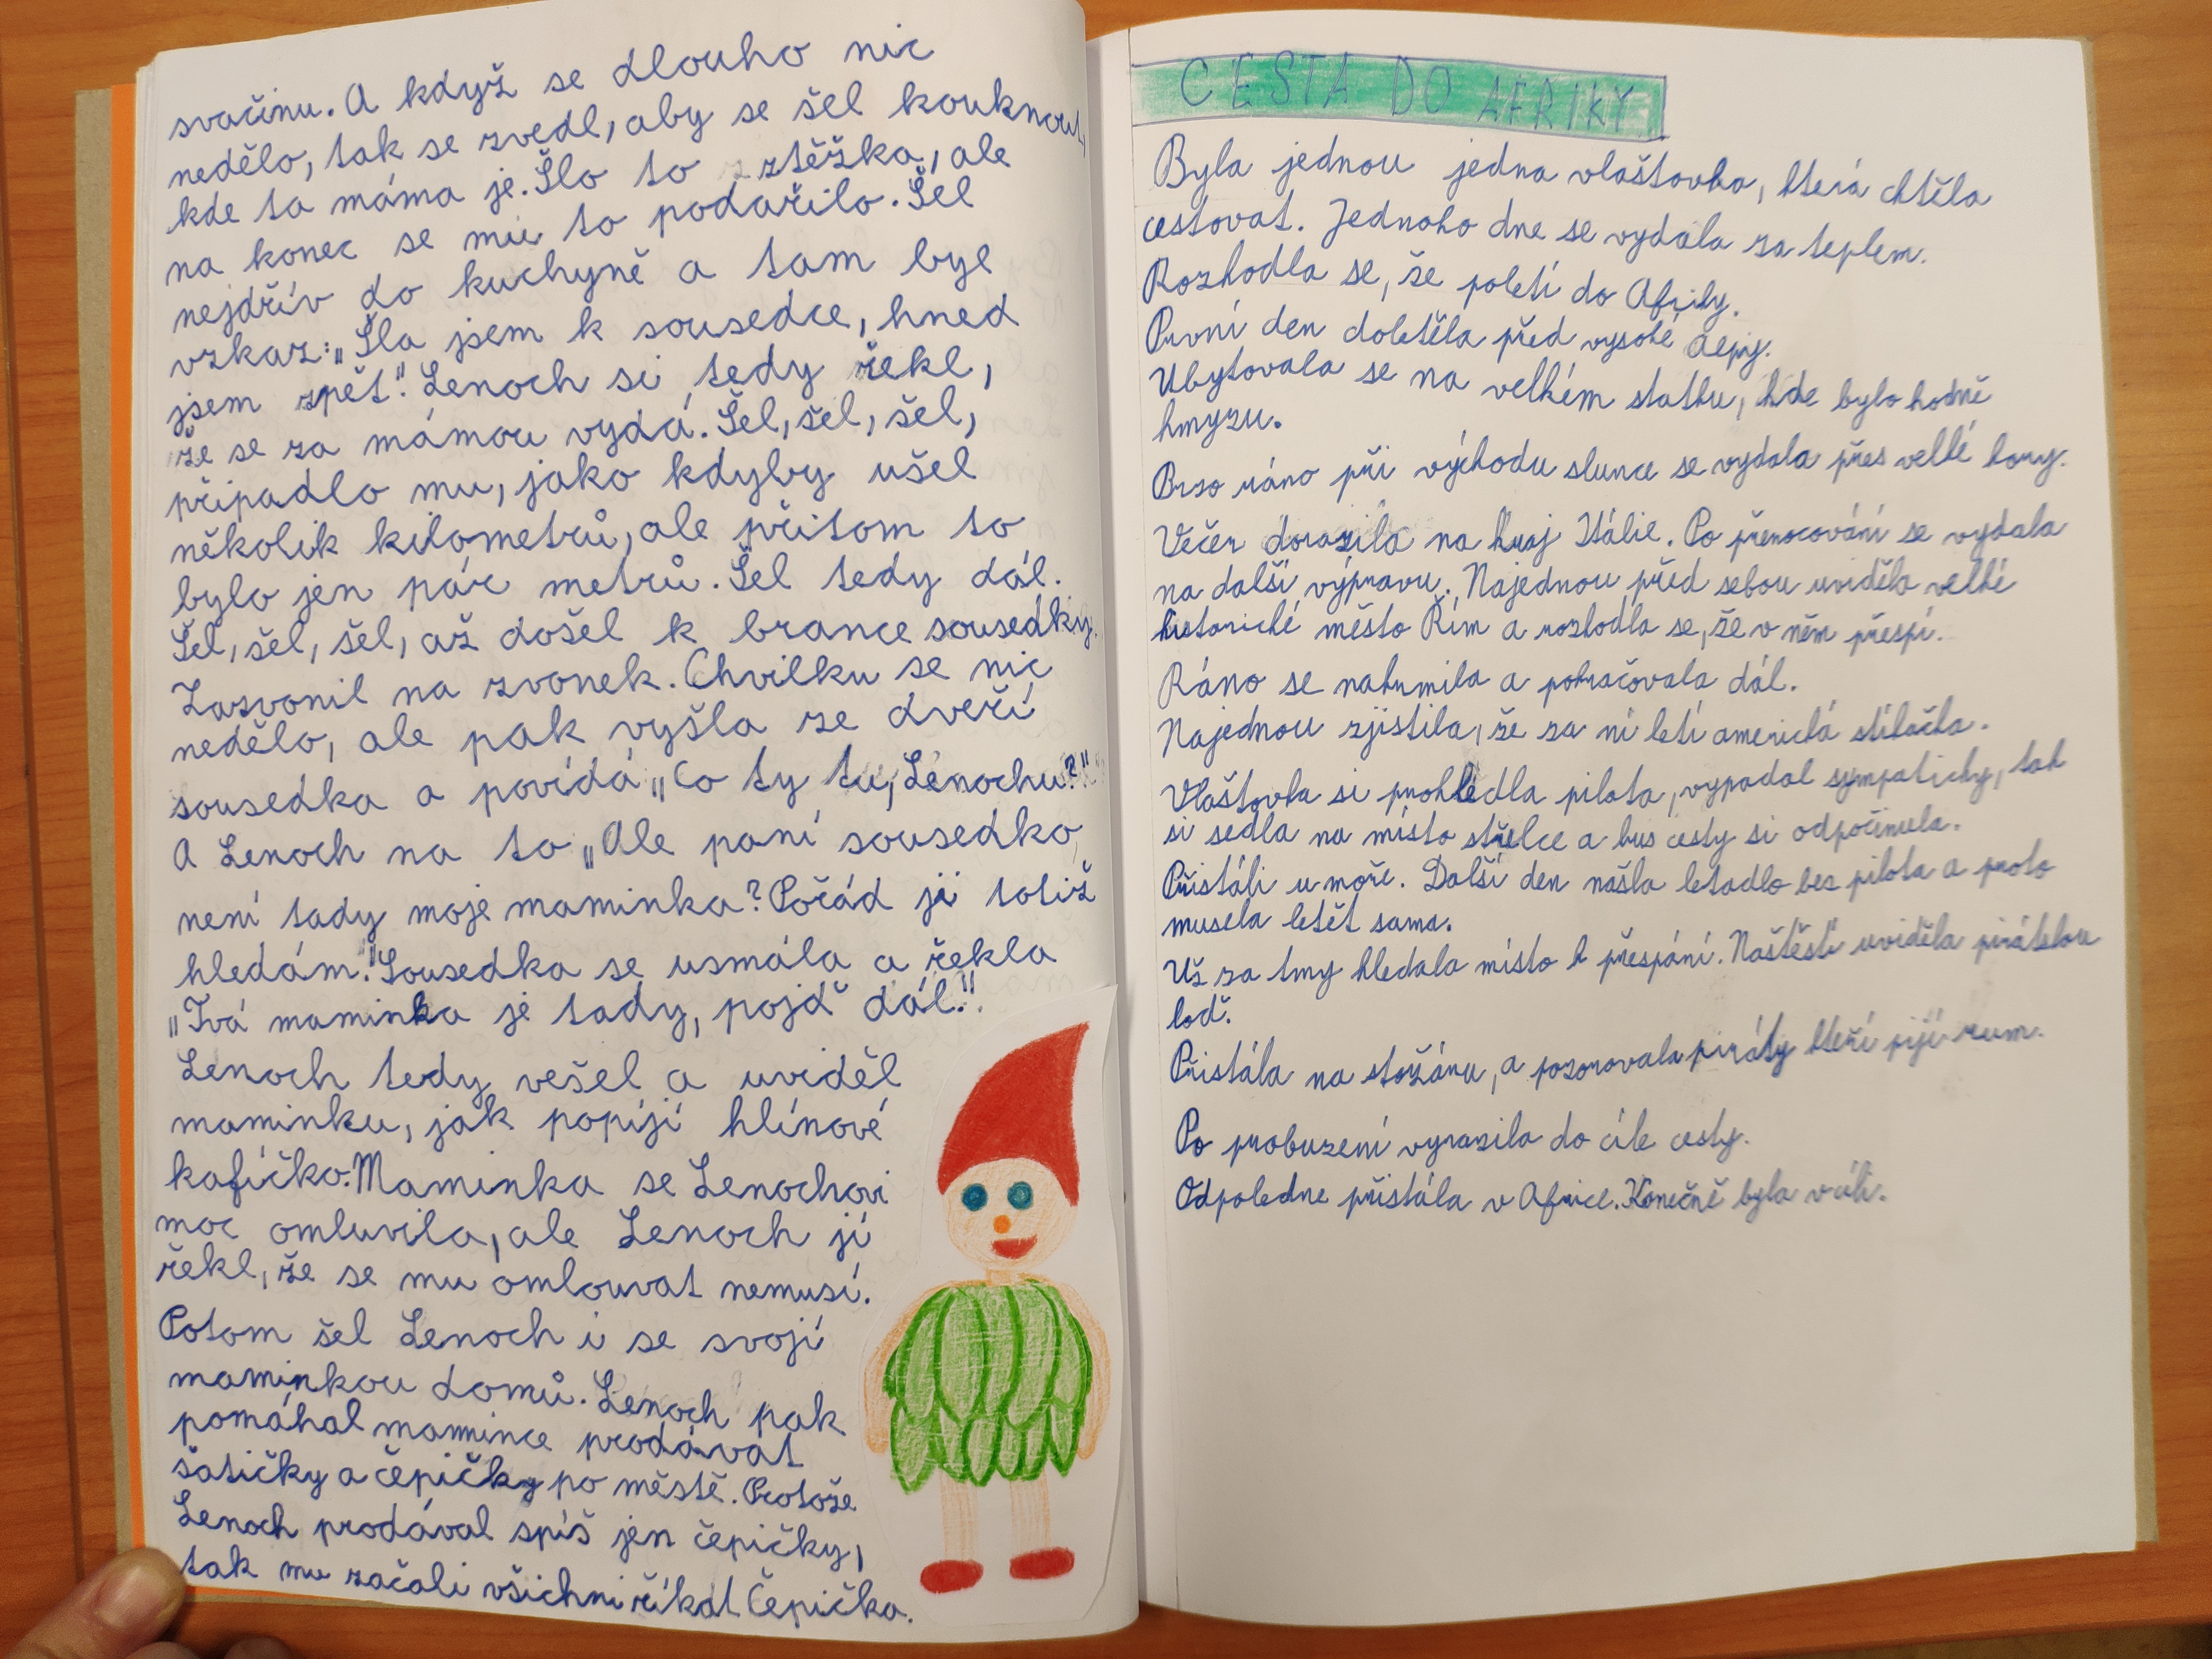 svačinu. A když se dlouho nic
nedělo, tak se zvedl, aby se šel kouknout,
kde ta máma je. Šlo to ztěžka, ale
na konec se mu to podařilo. Šel
nejdřív do kuchyně a tam byl
vzkaz: „Šla jsem k sousedce, hned
jsem zpět." Lenoch si tedy řekl,
že se za mámou vydá. Šel, šel, šel,
připadlo mu, jako kdyby ušel
několik kilometrů, ale přitom to
bylo jen pár metrů. Šel tedy dál.
Šel, šel, šel, až došel k brance sousedky.
Zazvonil na zvonek. Chvilku se nic
nedělo, ale pak vyšla ze dveří
sousedka a povídá „Co ty tu, Lenochu?"
A Lenoch na to „Ale paní sousedko,
není tady moje maminka? Pořád ji totiž
hledám." Sousedka se usmála a řekla
„Tvá maminka je tady, pojď dál."
Lenoch tedy vešel a uviděl
maminku, jak popíjí hlínové
kafíčko. Maminka se Lenochovi
moc omluvila, ale Lenoch jí
řekl, že se mu omlouvat nemusí.
Potom šel Lenoch i se svojí
maminkou domů. Lenoch pak
pomáhal mamince prodávat
šatičky a čepičky po městě. Protože
Lenoch prodával spíš jen čepičky,
tak mu začali všichni říkat Čepička.
CESTA DO AFRIKY
Byla jednou jedna vlaštovka, která chtěla
cestovat. Jednoho dne se vydala za teplem.
Rozhodla se, že poletí do Afriky.
První den doletěla před vysoké Alpy.
Ubytovala se na velkém statku, kde bylo hodně
hmyzu.
Brzo ráno při východu slunce se vydala přes velké hory.
Večer dorazila na kraj Itálie. Po přenocování se vydala
na další výpravu. Najednou před sebou uviděla velké
historické město Řím a rozhodla se, že v něm přespí.
Ráno se nakrmila a pokračovala dál.
Najednou zjistila, že za ní letí americká stíhačka.
Vlaštovka si prohlédla pilota, vypadal sympaticky, tak
si sedla na místo střelce a kus cesty si odpočinula.
Přistáli u moře. Další den našla letadlo bez pilota a proto
musela letět sama.
Už za tmy hledala místo k přespání. Naštěstí uviděla pirátskou
loď.
Přistála na stožáru, a pozorovala piráty kteří pijí rum.
Po probuzení vyrazila do cíle cesty.
Odpoledne přistála v Africe. Konečně byla v cíli.